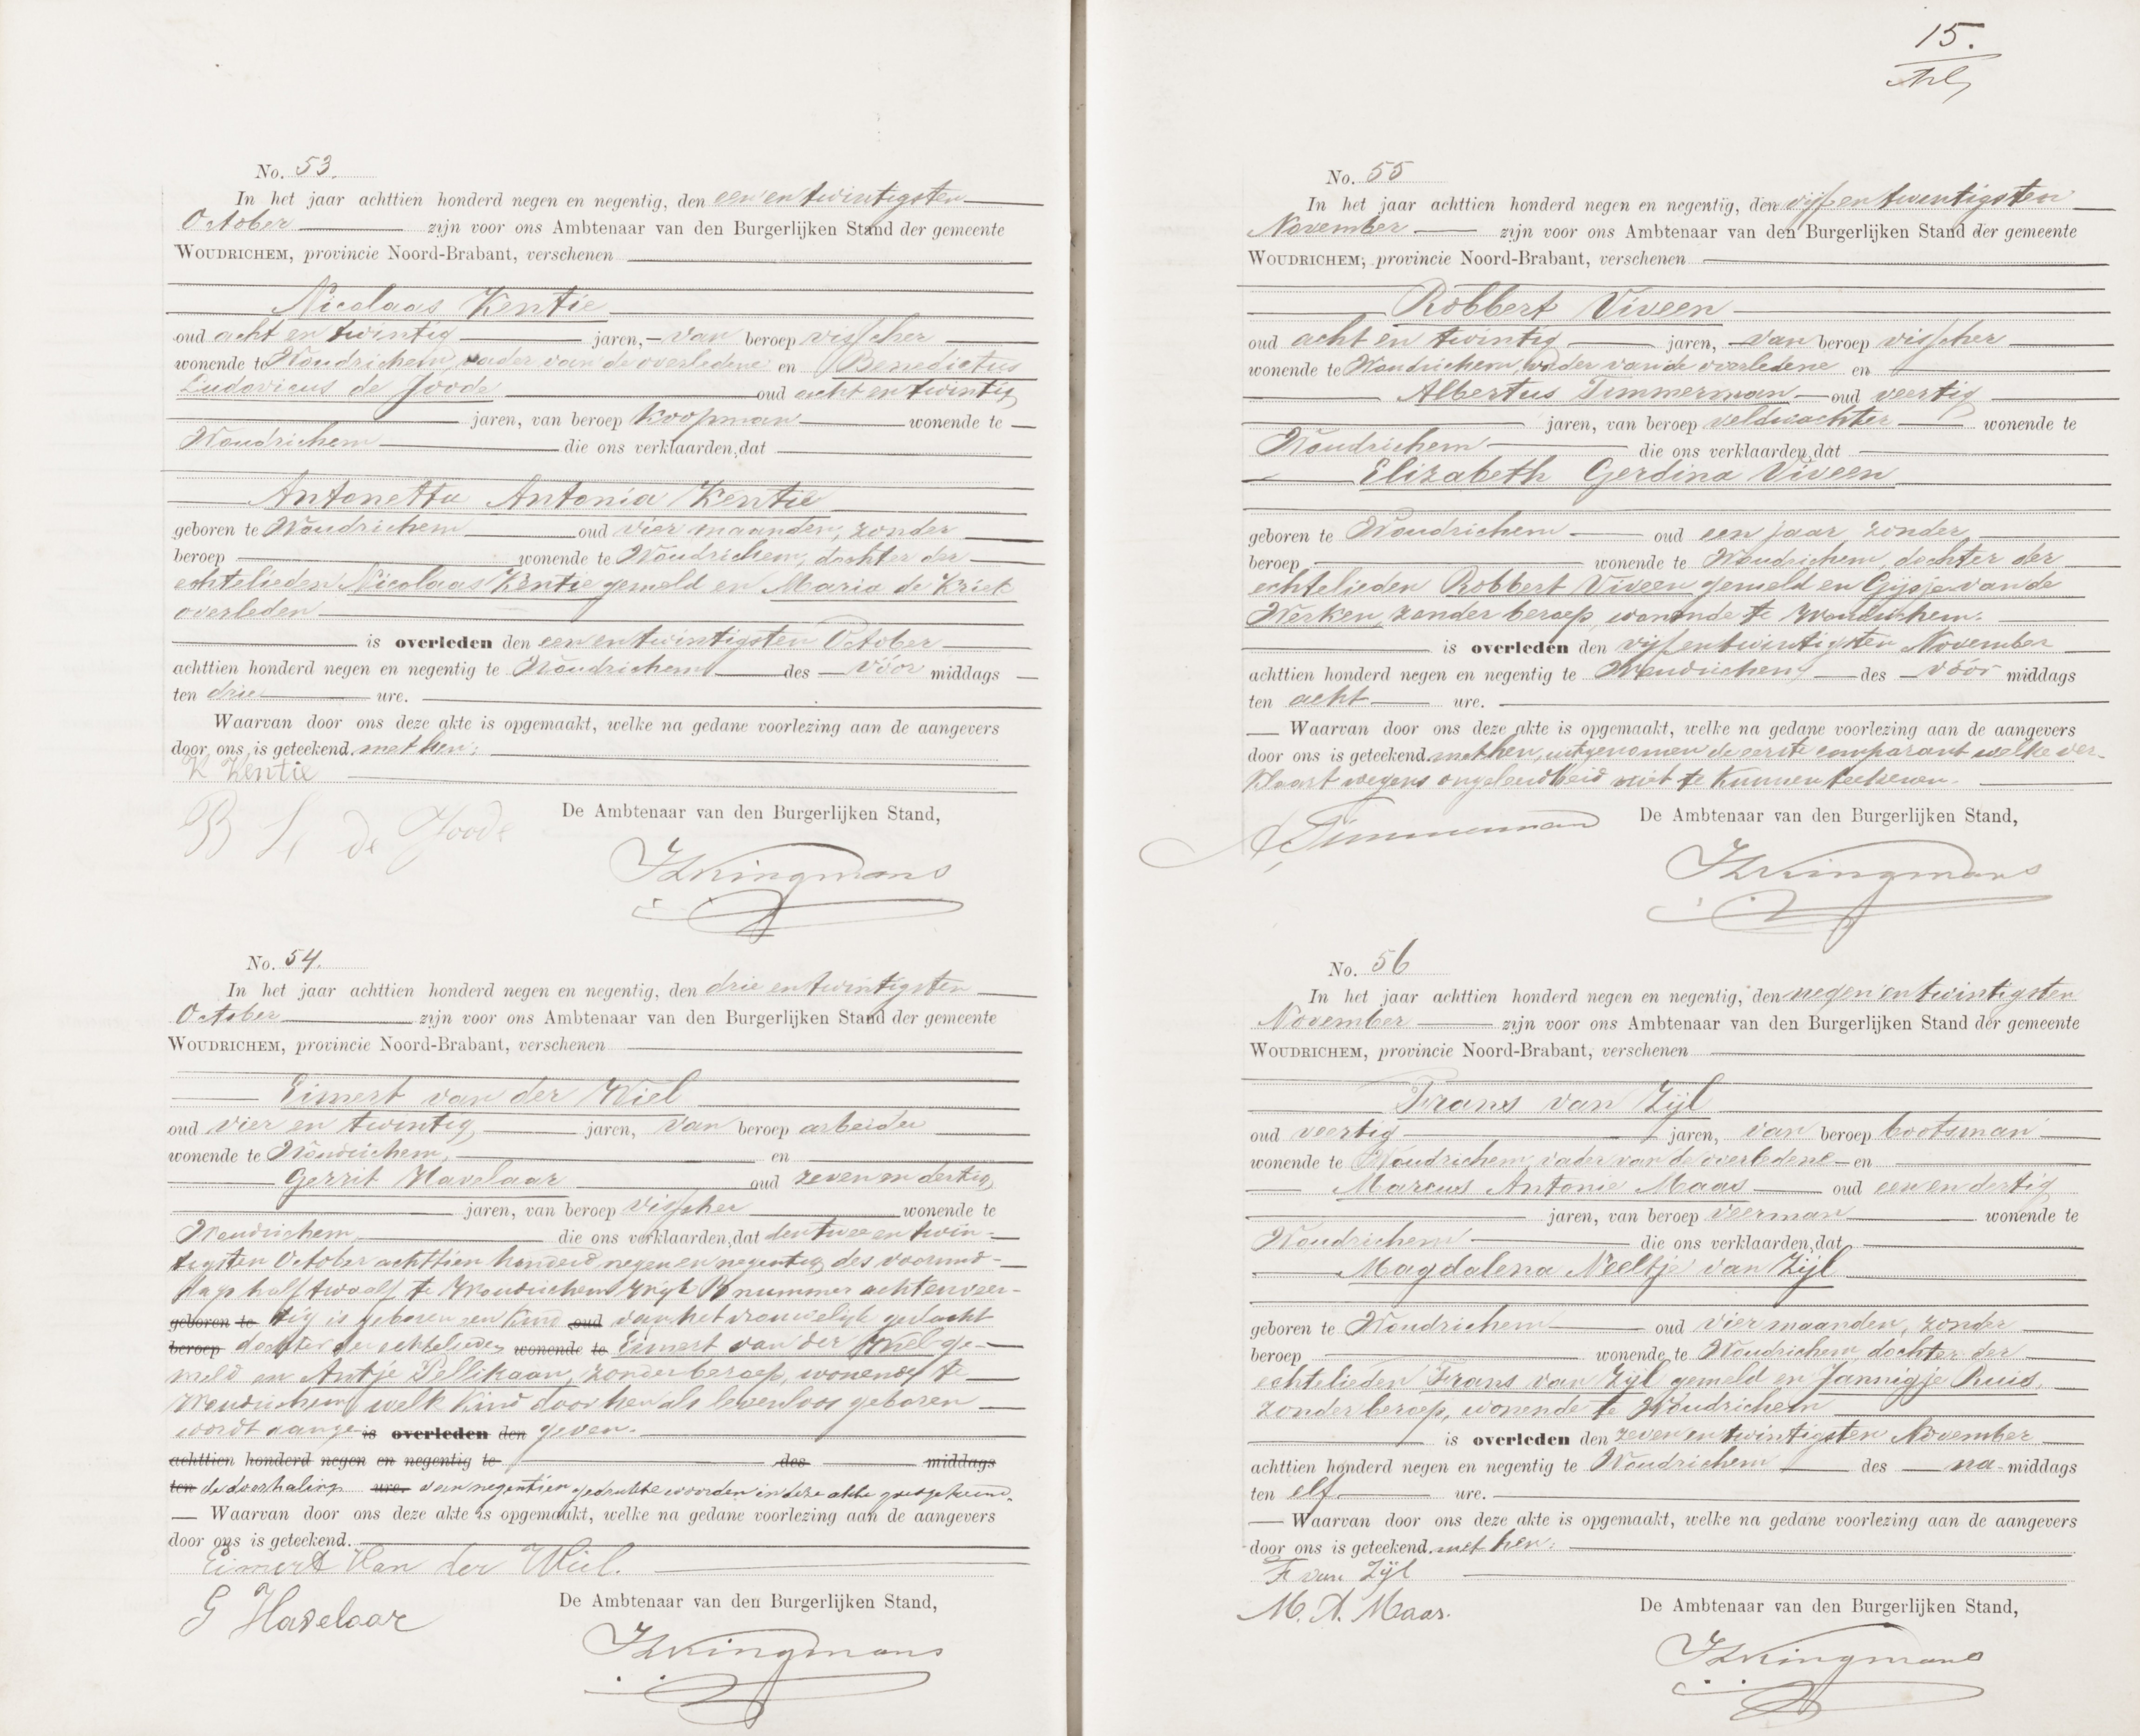 No. 53.
In het jaar achttien honderd negen en negentig, den een en twintigsten
October zijn voor ons Ambtenaar van den Burgerlijken Stand der gemeente
WOUDRICHEM, provincie Noord-Brabant, verschenen
Nicolaas Kentie
oud acht en twintig jaren, van beroep visscher
wonende te Woudrichem, vader van de overledene en Benedictus
Ludovicus de Joode oud acht en twintig
jaren, van beroep koopman wonende te
Woudrichem die ons verklaarden, dat
Antonetta Antonia Kentie
geboren te Woudrichem oud vier maanden, zonder
beroep wonende te Woudrichem, dochter der
echtelieden Nicolaas Kentie gemeld en Maria de Kriek
overleden
is overleden den een en twintigsten October
achttien honderd negen en negentig te Woudrichem des vóór middags
ten drie ure.
Waarvan door ons deze akte is opgemaakt, welke na gedane voorlezing aan de aangevers
door ons is geteekend. met hen.
Kentie
B L de Joode
De Ambtenaar van den Burgerlijken Stand,
Kingmans
No. 54.
In het jaar achttien honderd negen en negentig, den drie en twintigsten
October zijn voor ons Ambtenaar van den Burgerlijken Stand der gemeente
WOUDRICHEM, provincie Noord-Brabant, verschenen
Eimert van der Wiel
oud vier en twintig jaren, van beroep arbeider
wonende te Woudrichem, en
Gerrit Havelaar oud zeven en dertig
jaren, van beroep visscher wonende te
Woudrichem die ons verklaarden, dat den twee en twin-
tigsten October achttien honderd negen en negentig des voormid-
dags half twaalf te Woudrichem Wijk B nummer acht en veer-
geboren te tig is geboren een kind oud van het vrouwelijk geslacht
beroep dochter der echtelieden wonende te Eimert van der Wiel ge-
meld en Antje Pellikaan, zonder beroep, wonende te
Woudrichem, welk kind door hen als levenloos geboren
wordt aange- is overleden den geven.
achttien honderd negen en negentig te des middags
ten de doorhaling ure. van negentien gedrukte woorden in deze akte goedgekeurd.
Waarvan door ons deze akte is opgemaakt, welke na gedane voorlezing aan de aangevers
door ons is geteekend.
Eimert Van der Wiel.
G Havelaar
De Ambtenaar van den Burgerlijken Stand,
Kingmans
15.
No. 55
In het jaar achttien honderd negen en negentig, den vijf en twintigsten
November zijn voor ons Ambtenaar van den Burgerlijken Stand der gemeente
WOUDRICHEM, provincie Noord-Brabant, verschenen
Robbert Viveen
oud acht en twintig jaren, van beroep visscher
wonende te Woudrichem, vader van de overledene en
Albertus Timmerman oud veertig
jaren, van beroep veldwachter wonende te
Woudrichem die ons verklaarden, dat
Elizabeth Gerdina Viveen
geboren te Woudrichem oud een jaar zonder
beroep wonende te Woudrichem, dochter der
echtelieden Robbert Viveen gemeld en Gijsje van de
Werken, zonder beroep, wonende te Woudrichem.
is overleden den vijf en twintigsten November
achttien honderd negen en negentig te Woudrichem des vóór middags
ten acht ure.
Waarvan door ons deze akte is opgemaakt, welke na gedane voorlezing aan de aangevers
door ons is geteekend. met hen, uitgenomen de eerste comparant welke ver-
klaart wegens ongeleerdheid niet te kunnen teekenen.
A Timmerman
De Ambtenaar van den Burgerlijken Stand,
Kingmans
No. 56
In het jaar achttien honderd negen en negentig, den negen en twintigsten
November zijn voor ons Ambtenaar van den Burgerlijken Stand der gemeente
WOUDRICHEM, provincie Noord-Brabant, verschenen
Frans van Zijl
oud veertig jaren, van beroep bootsman
wonende te Woudrichem, vader van de overledene en
Marcus Antonie Maas oud een en dertig
jaren, van beroep veerman wonende te
Woudrichem die ons verklaarden, dat
Magdalena Neeltje van Zijl
geboren te Woudrichem oud vier maanden, zonder
beroep wonende te Woudrichem, dochter der
echtelieden Frans van Zijl gemeld en Jannigje Ruis,
zonder beroep, wonende te Woudrichem
is overleden den zeven en twintigsten November
achttien honderd negen en negentig te Woudrichem des na-middags
ten elf ure.
Waarvan door ons deze akte is opgemaakt, welke na gedane voorlezing aan de aangevers
door ons is geteekend. met hen.
F van Zijl
M. A. Maas.
De Ambtenaar van den Burgerlijken Stand,
Kingmans